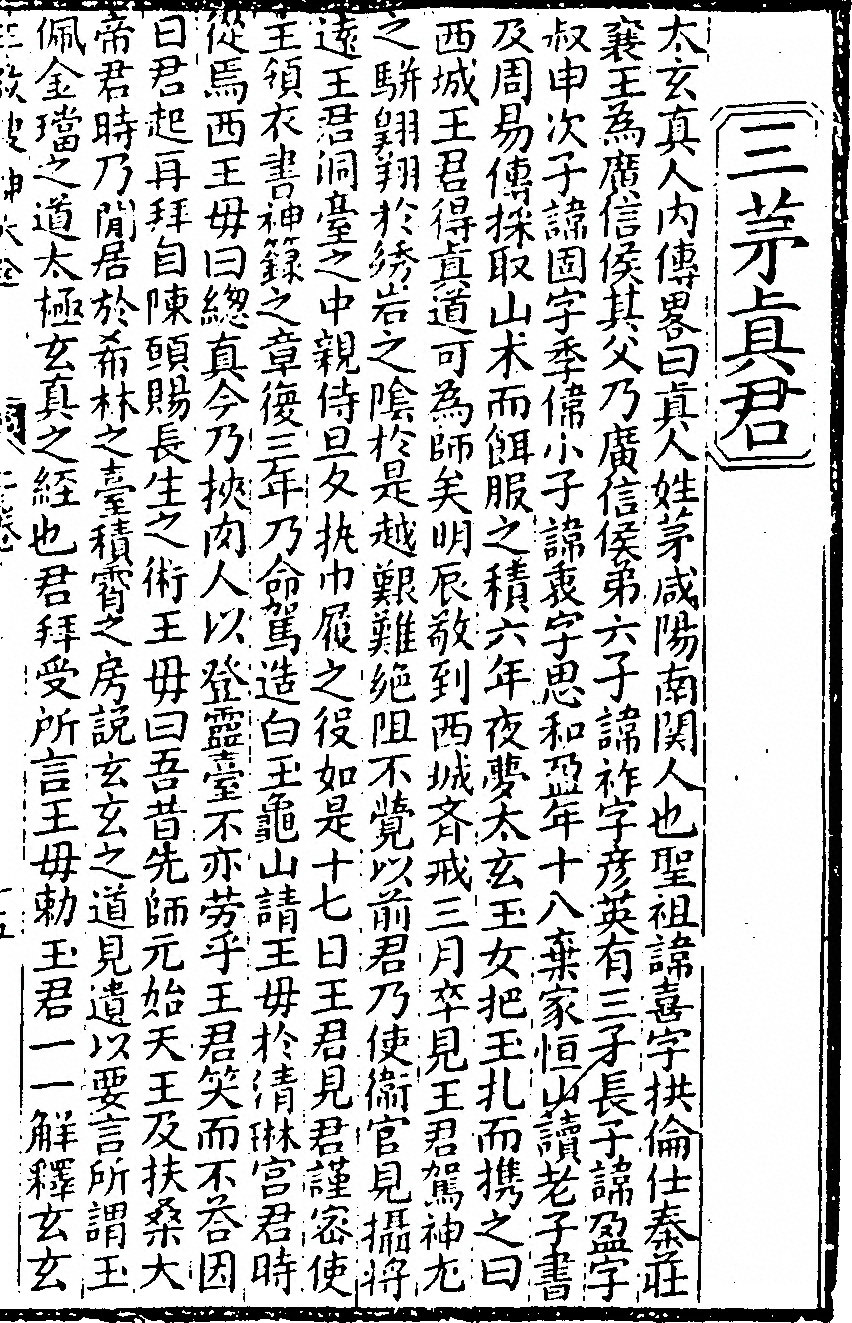 三茅眞君
太玄真人内傳畧曰眞人姓茅咸陽南関人也聖祖諱喜字拱倫仕秦莊
襄王為廣信侯其父乃廣信侯弟六子諱祚字彦英有三子長子諱盈字
叔申次子諱固字季偉小子諱衷字思和盈年十八棄家恒山讀老子書
及周易傳採取山术而餌服之積六年夜夢太玄玉女把玉扎而携之曰
西城王君得眞道可為師矣明辰敬到西城斉戒三月卒見王君駕神
之駢翱翔於綉岩之陰於是越艱難絶阻不覺以前君乃使衞官見攝將
遠王君洞臺之中親侍旦夕执巾履之役如是十七日王君見君謹密使
主領衣書神籙之章復三年乃命駕造白玉龜山請王毋於清琳宫君時
從焉西王毋曰緫真今乃挾肉人以登靈臺不亦劳乎王君笑而不荅因
曰君起再拜自陳頭賜長生之術王毋曰吾昔先師元始天王及扶桑大
帝君時乃閒居於希林之臺積霄之房説玄玄之道見遺以要言所謂玉
佩金璫之道太極玄真之経也君拜受所言王毋勅玉君一一解釋玄玄
三教搜神大全
二卷